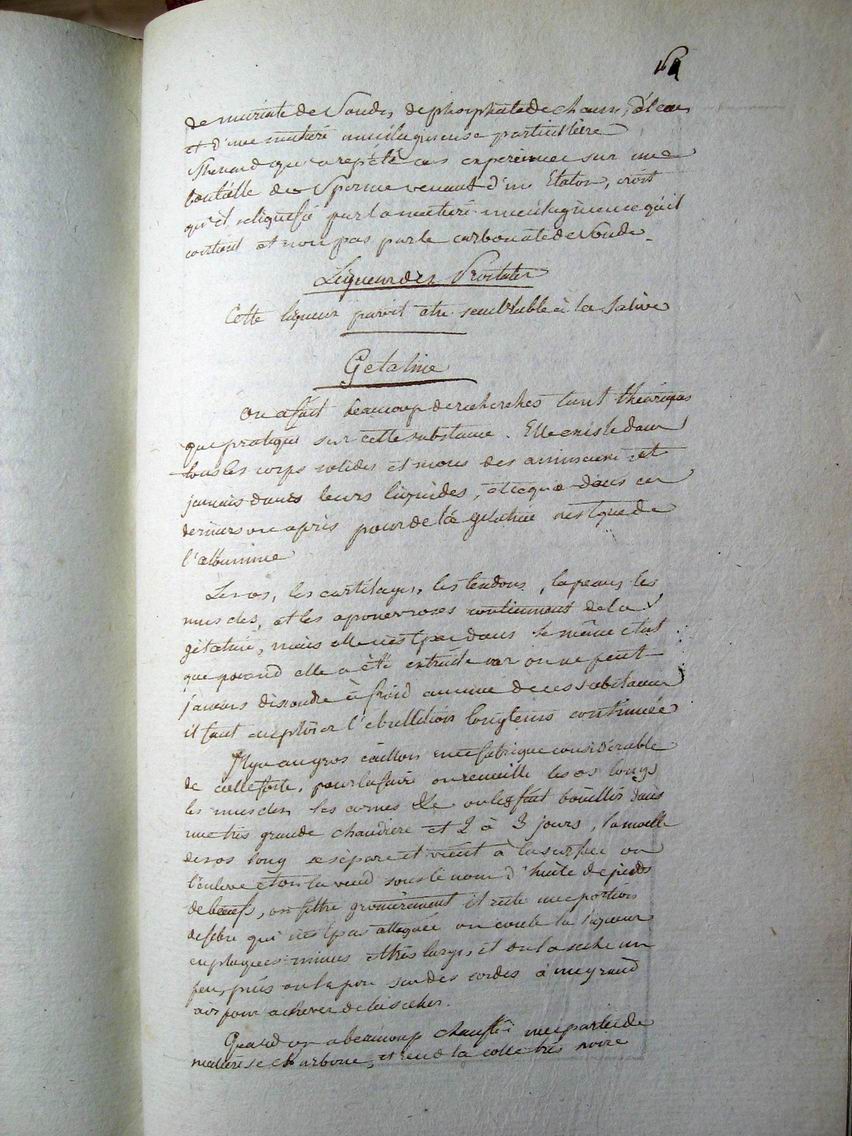 de muriate de Soude, de phosphate de chaux, d'eau
et d'une matiere mucilagineuse particuliere
Thenard qui a repété ces experiences sur une
bouteille de Sperme venant d'un Etalon, croit
qu'il se liquefie par la matiere mucilagineuse qu'il
contient et non pas par le carbonate de Soude.
Liqueur des Prostates
Cette liqueur paroit etre semblable à la Salive
Gelatine
On a fait beaucoup de recherches tant théoriques
que pratiques sur cette substance. Elle existe dans
tous les corps solides et mous des animaux et
jamais dans leurs liquides, et ce que dans ces
derniers on a pris pour de la gelatine n'est que de
l'albumine
Les os, les cartilages, les tendons, la peau, les
muscles, et les aponevroses contiennent de la
gelatine, mais elle n'est pas dans le même etat
que quand elle a été extraite car on ne peut
jamais dissoudre à froid aucune de ces substances
il faut employer l'ebullition longtems continuée
Il y a au gros caillou une fabrique considérable
de colle forte, pour la faire on recueille les os longs
les muscles les cornes &c on les fait bouillir dans
une très grande chaudiere et 2 à 3 jours, la moelle
des os long se sépare et vient à la surface on
l'enleve et on la vend sous le nom d'huile de pieds
de boeufs, on filtre grossièrement il reste une portion
de fibre qui n'est pas attaquée on coule la liqueur
en plaques minces et très larges, et on la seche un
peu, puis on la pose sur des cordes à un grand
air pour achever de la sécher.
Quand on a beaucoup chauffé une partie de
matiere se charbone, et rend la colle très noire